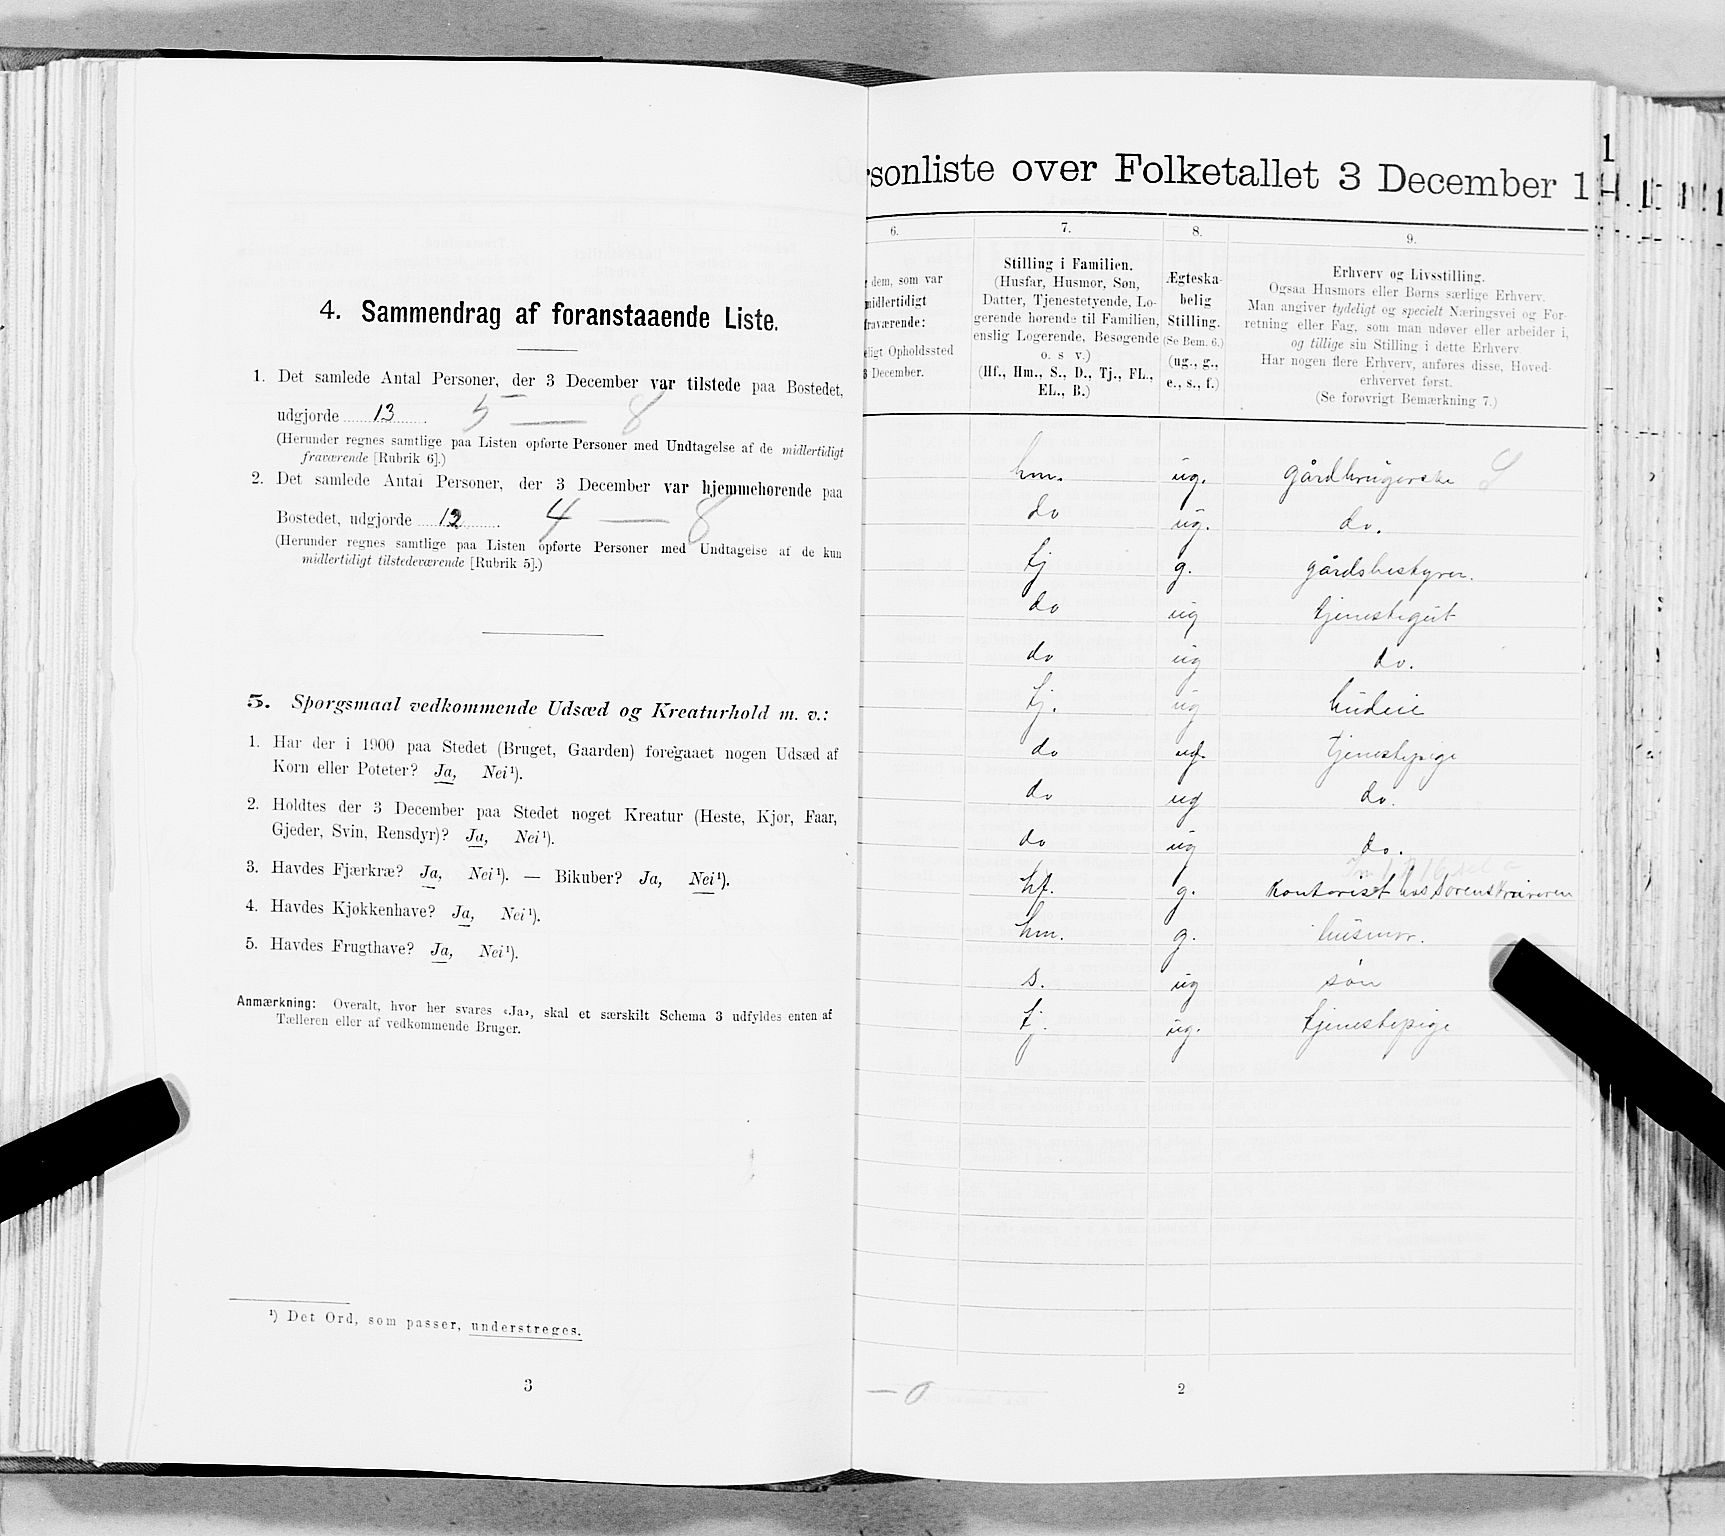 4. Sammendrag af foranstaaende Liste.
1. Det samlede Antal Personer, der 3 December var tilstede paa Bostedet,
udgjorde 13. 5 — 8
(Herunder regnes samtlige paa Listen opførte Personer med Undtagelse af de midlertidigt
fraværende [Rubrik 6].)
2. Det samlede Antal Personer, der 3 December var hjemmehørende paa
Bostedet, udgjorde 12. 4 — 8
(Herunder regnes samtlige paa Listen opførte Personer med Undtagelse af de kun
midlertidigt tilstedeværende [Rubrik 5].)
5. Spørgsmaal vedkommende Udsæd og Kreaturhold m. v.:
1. Har der i 1900 paa Stedet (Bruget, Gaarden) foregaaet nogen Udsæd af
Korn eller Poteter? Ja, Nei¹).
2. Holdtes der 3 December paa Stedet noget Kreatur (Heste, Kjør, Faar,
Gjeder, Svin, Rensdyr)? Ja, Nei¹).
3. Havdes Fjærkræ? Ja, Nei¹). — Bikuber? Ja, Nei¹).
4. Havdes Kjøkkenhave? Ja, Nei¹).
5. Havdes Frugthave? Ja, Nei¹).
Anmærkning: Overalt, hvor her svares «Ja», skal et særskilt Schema 3 udfyldes enten af
Tælleren eller af vedkommende Bruger.
¹) Det Ord, som passer, understreges.
3
rsonliste over Folketallet 3 December 1
6. 7. 8. 9.
dem, som var
midlertidigt
fraværende:
eligt Opholdssted
3 December.
Stilling i Familien.
(Husfar, Husmor, Søn,
Datter, Tjenestetyende, Lo-
gerende hørende til Familien,
enslig Logerende, Besøgende
o. s. v.)
(Hf., Hm., S., D., Tj., FL.,
EL., B.)
Ægteska-
belig
Stilling.
(Se Bem. 6.)
(ug., g.,
e., s., f.)
Erhverv og Livsstilling.
Ogsaa Husmors eller Børns særlige Erhverv.
Man angiver tydeligt og specielt Næringsvei og For-
retning eller Fag, som man udøver eller arbeider i,
og tillige sin Stilling i dette Erhverv.
Har nogen flere Erhverv, anføres disse, Hoved-
erhvervet først.
(Se forøvrigt Bemærkning 7.)
hm. ug. gårdbrugerske
do ug. do.
tj g. gårdsbestyrer.
do ug tjenestegut
do ug do.
tj. ug budeie
do ug. tjenestepige
do ug do.
do ug do.
hf. g. Kontorist hos Sorenskriveren
hm. g. husmor.
s. ug søn
tj. ug. tjenestepige
— 0
2